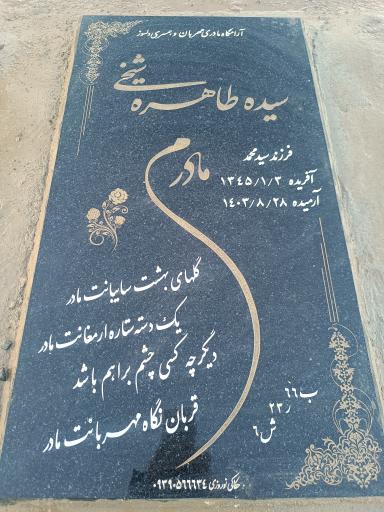 آرامگاه مادری مهربان و همسری دلسوز
سیده طاهره شیخی
فرزند سید محمد
آفریده ۱۳۴۵/۱/۳
آرمیده ۱۴۰۳/۸/۲۸
مادرم
گلهای بهشت سایبانت مادر
یک دسته ستاره ارمغانت مادر
دیگر چه کسی چشم براهم باشد
قربان نگاه مهربانت مادر
ب ۶۶
ر ۲۳
ش ۶
حکاکی نوروزی ۰۹۳۹۰۵۶۶۶۳۴